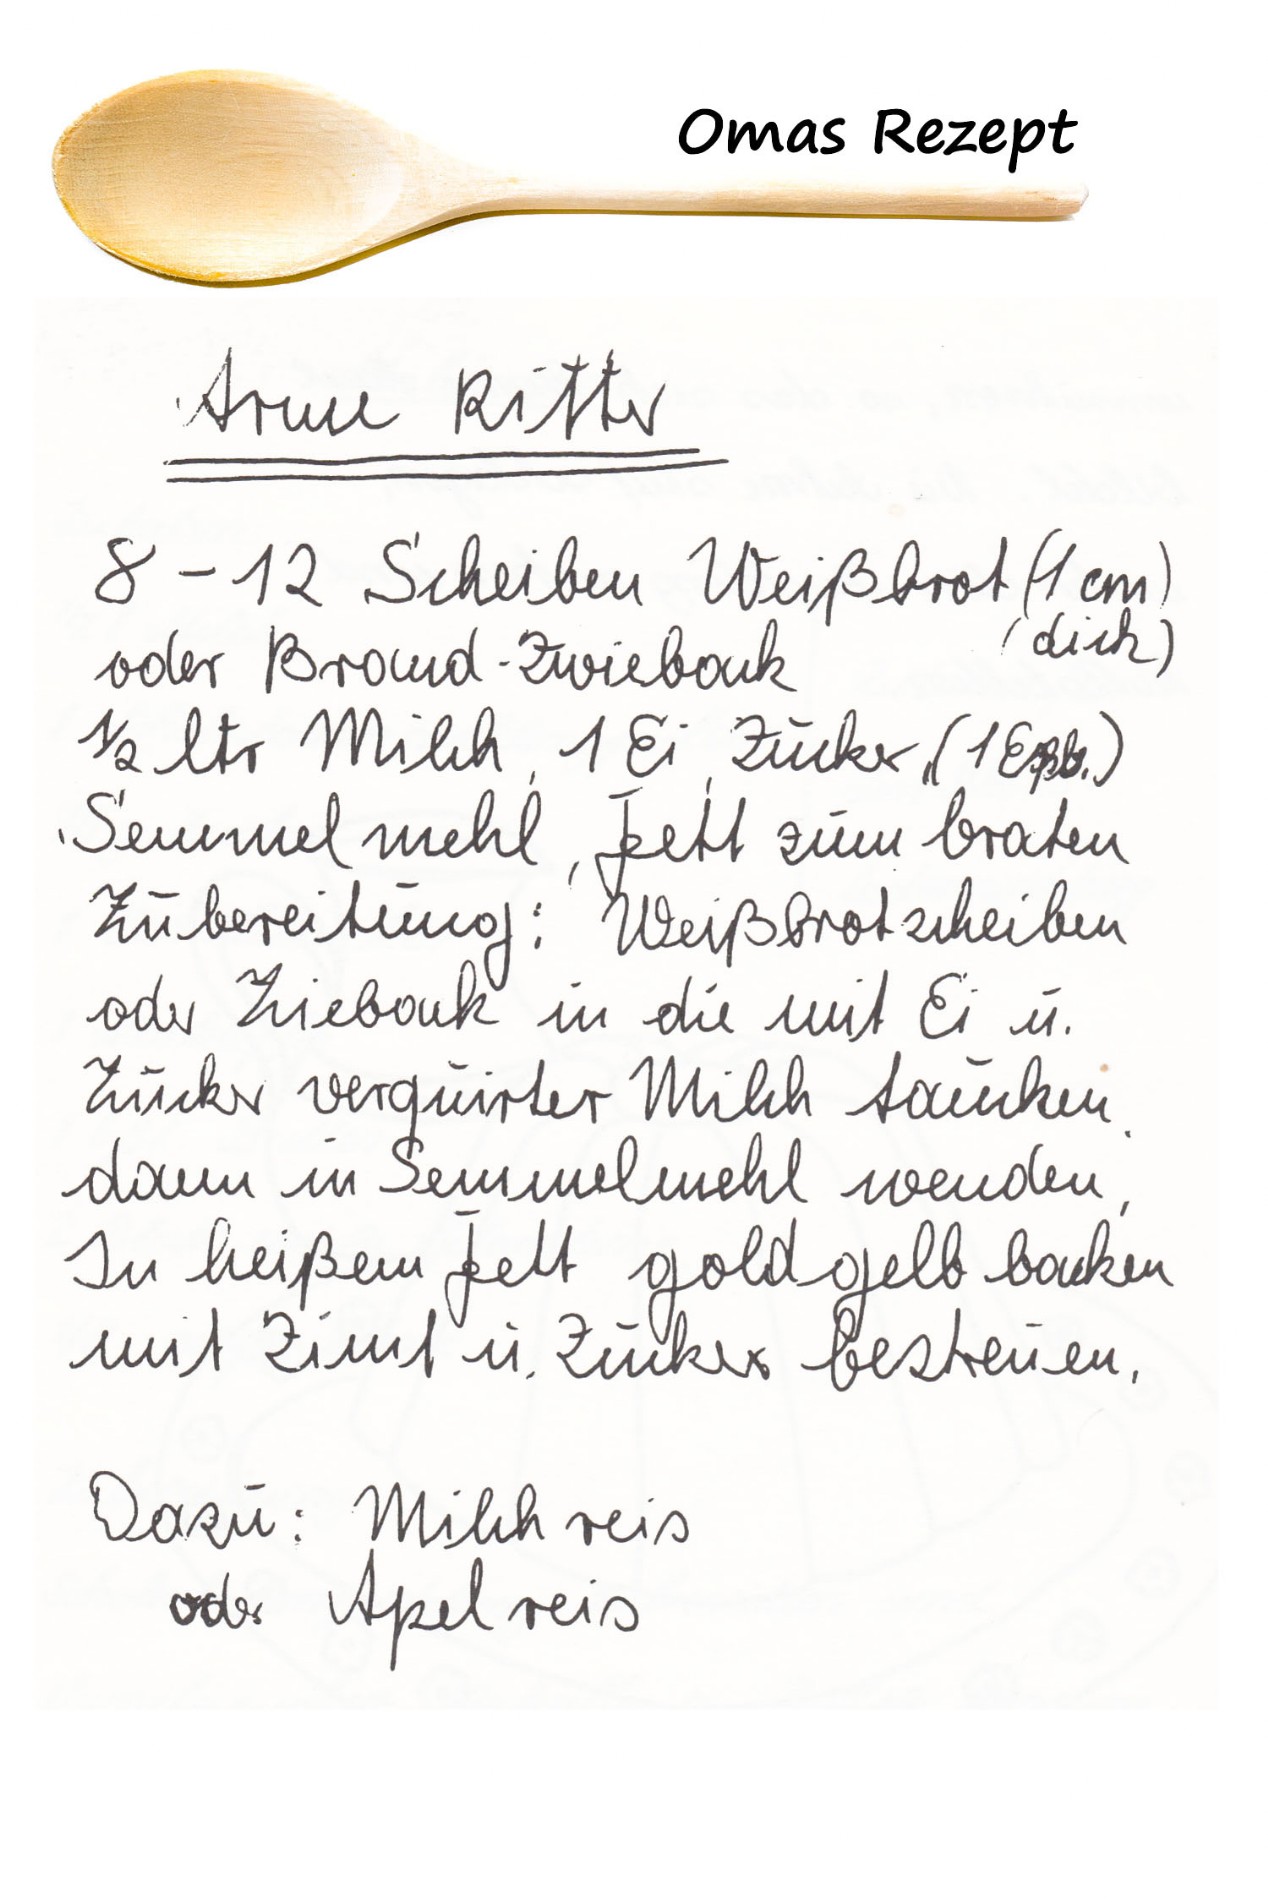 Omas Rezept
Arme Ritter
8 - 12 Scheiben Weißbrot (1 cm)
(dick)
oder Brand-Zwieback
1/2 ltr Milch, 1 Ei, Zucker, (1 Eßb.)
Semmelmehl, Fett zum braten
Zubereitung: Weißbrotscheiben
oder Zwieback in die mit Ei u.
Zucker verquirter Milch tauchen.
dann in Semmelmehl wenden,
In heißem Fett goldgelb backen
mit Zimt u. Zucker bestreuen.
Dazu: Milchreis
oder Apelreis